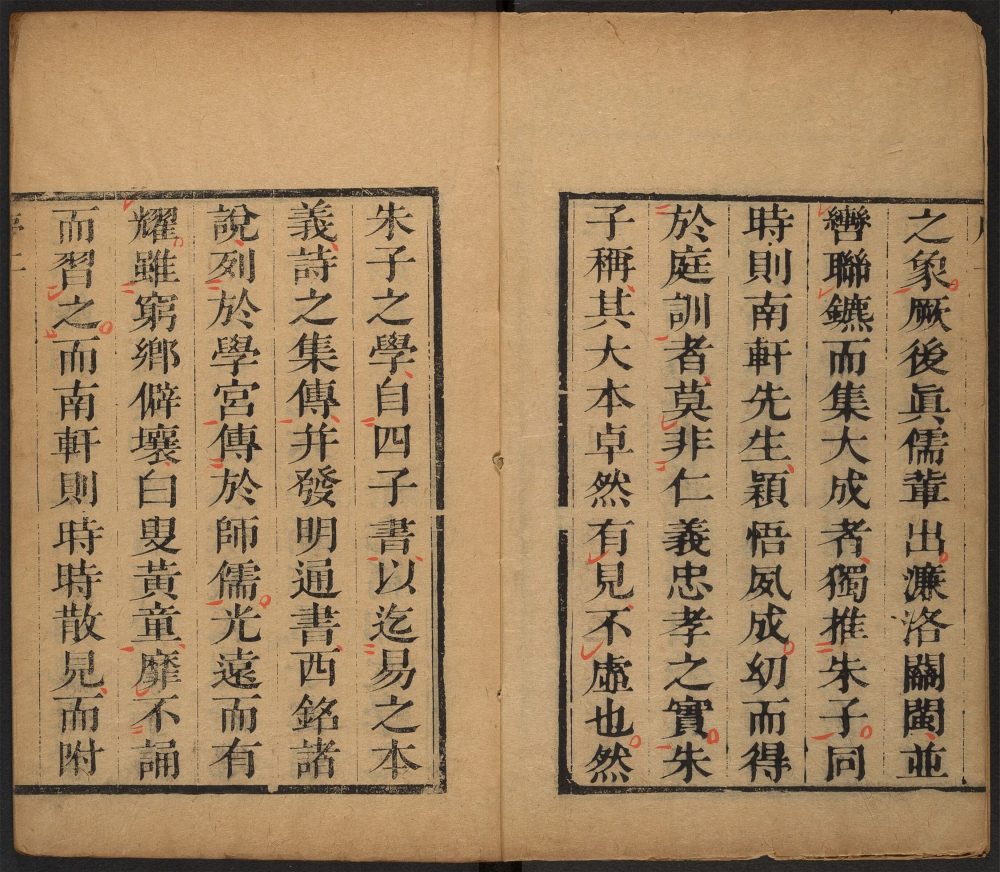 之象厥後眞儒輩出濂洛關閩並
轡聯鑣而集大成者獨推朱子同
時則南軒先生穎悟夙成幼而得
於庭訓者莫非仁義忠孝之實朱
子稱其大本卓然有見不虛也然
朱子之學自四子書以迄易之本
義詩之集傳并發明通書西銘諸
說列於學宮傳於師儒光遠而有
耀雖窮鄉僻壤白叟黃童靡不誦
而習之而南軒則時時散見而附